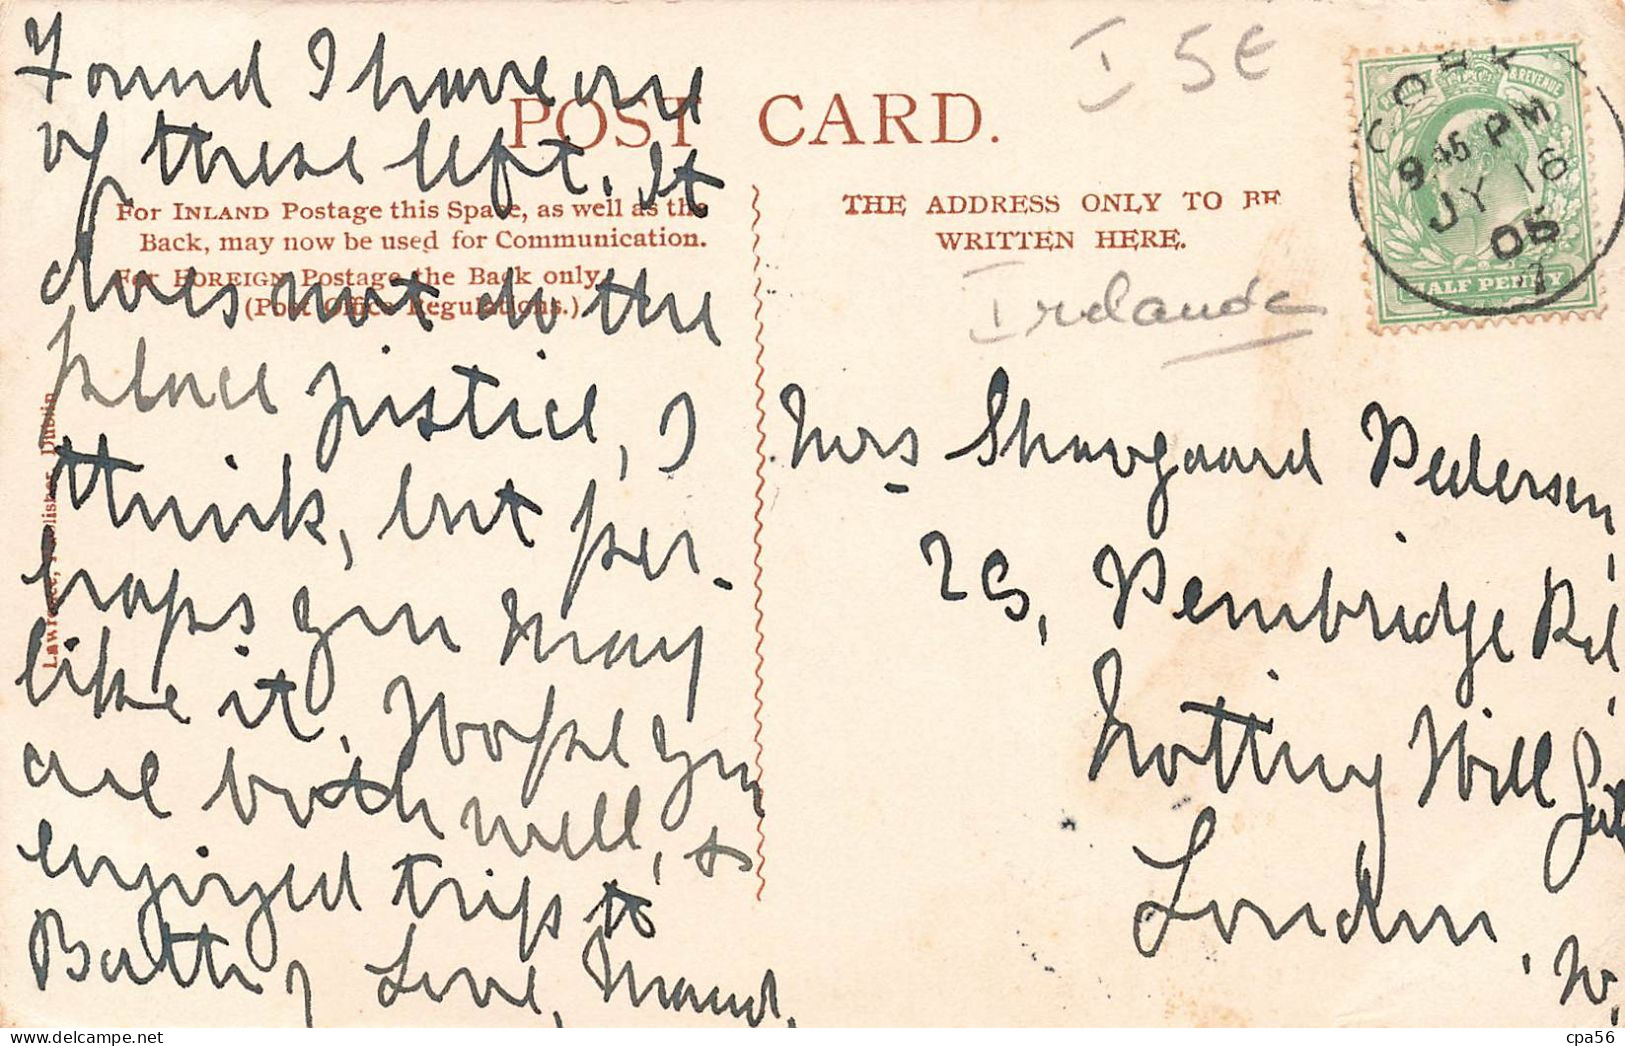 Found I have one
of these left. It
does not do the
place justice, I
think, but per-
haps you may
like it. Hope you
are both well, &
enjoyed trip to
Love, Maud.
POST CARD.
For INLAND Postage this Space, as well as the
Back, may now be used for Communication.
For FOREIGN Postage the Back only.
(Post Office Regulations.)
Lawrence, Publisher, Dublin
THE ADDRESS ONLY TO BE
WRITTEN HERE.
I 5€
Irelande
CORK
9.45 PM
JY 16
05
& REVENUE
HALF PENNY
Mrs Shovgaard Pedersen,
Pembridge Rd,
Notting Hill Gate
London,
W.
delcampe.net
cpa56